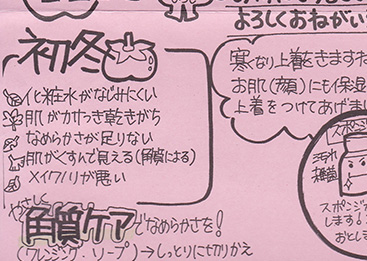 よろしくおねがい
初冬
化粧水がなじみにくい
肌がカサつき乾きがち
なめらかさが足りない
肌がくすんで見える(角質による)
メイクノリが悪い
やさしく
角質ケアでなめらかさを!
(クレンジング、ソープ)→しっとりに切りかえ
寒くなり上着きますね
お肌(顔)にも保湿
上着をつけてあげま
スポンジ
汚れ
雑菌
スポンジ
します!
おとし